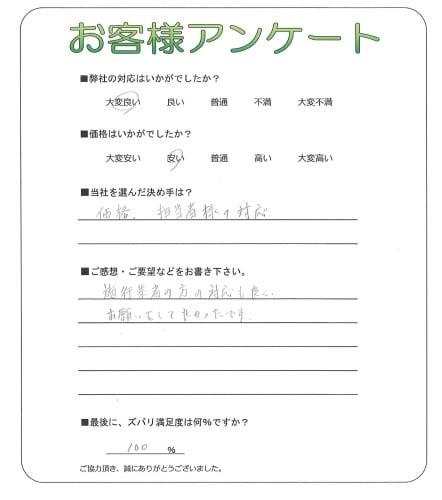 お客様アンケート
■弊社の対応はいかがでしたか？
大変良い 良い 普通 不満 大変不満
■価格はいかがでしたか？
大変安い 安い 普通 高い 大変高い
■当社を選んだ決め手は？
価格、担当者様の対応
■ご感想・ご要望などをお書き下さい。
施行業者の方の対応も良く、
お願いをして良かったです。
■最後に、ズバリ満足度は何%ですか？
100 %
ご協力頂き、誠にありがとうございました。